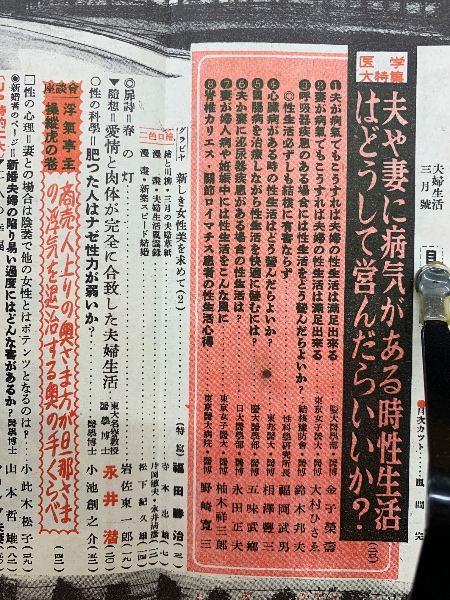 夫婦生活
三月號
目
目次カット
医学
大特集
夫や妻に病気がある時性生活
はどうして営んだらいいか？
①夫が病氣でもこうすれば夫婦の性生活は滿足出來る
慶大醫學部 醫博 金子榮壽
②妻が病氣でもこうすれば夫婦の性生活は滿足出來る
東京女子醫大 醫博 大村ひさゑ
③呼吸器疾患のある場合には性生活をどう營んだらよいか？
結核豫防會 醫博 鈴木邦夫
◎性生活必ずしも結核に有害ならず
性科學研究所長 福岡武男
④心臓病がある時の性生活はどう營んだらよいか？
東邦醫大 醫博 相澤豐三
⑤胃腸病を治療しながら性生活を快適に營むには？
慶大醫學部 醫博 五味武郷
⑥夫か妻に泌尿器疾患がある場合の性生活は
日大醫學部 醫博 永田正夫
⑦妻が婦人病や妊娠中には性生活をこんな風に
東京女子醫大 醫博 柚木祥三郎
⑧脊椎カリエス、關節ロイマチス患者の性生活心得
東京醫大病院 醫博 野崎寛三
グラビヤ
新しき女性美を求めて（2）
（特寫） 福田勝治
二色口繪
漫畫・新案スピード結婚
松下紀久雄
◎扉詩＝春の灯
岩佐東一郎
▼隨想＝愛情と肉体が完全に合致した夫婦生活
東大名譽教授
醫學博士 永井潜
○性の科學＝肥つた人はナゼ性力が弱いか？
醫學博士 小池創之介
座談會
浮氣亭主
操縦虎の巻
商売人上りの奥さま方が旦那さま
の浮気を退治する奥の手くらべ
□性の心理＝妻との場合は陰萎で他の女性とはポテンツとなるのは？
小此木松子
◉新婚者のページ＝新婚夫婦の陥り易い過度にはどんな害があるか？
醫學博士 山本哲雄